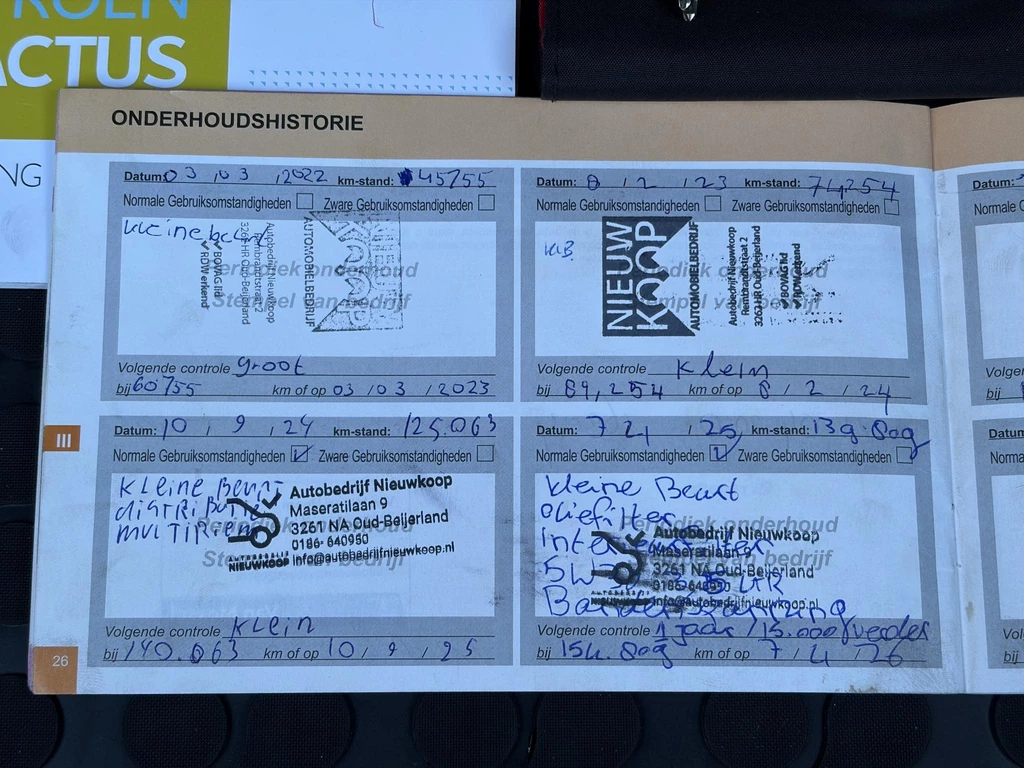 ROËN
ACTUS
NG
ONDERHOUDSHISTORIE
Datum: 03 / 03 / 2022 km-stand: 45755
Normale Gebruiksomstandigheden Zware Gebruiksomstandigheden
Kleine beurt
Periodiek onderhoud
Stempel van bedrijf
NIEUW
KOOP
AUTOMOBIELBEDRIJF
Autobedrijf Nieuwkoop
Rembrandtstraat 2
3261 HR Oud-Beijerland
BOVAG lid
RDW erkend
Volgende controle groot
bij 60755 km of op 03 / 03 / 2023
Datum: 8 / 2 / 23 km-stand: 74254
Normale Gebruiksomstandigheden Zware Gebruiksomstandigheden
KB.
Periodiek onderhoud
Stempel van bedrijf
NIEUW
KOOP
AUTOMOBIELBEDRIJF
Autobedrijf Nieuwkoop
Rembrandtstraat 2
3261 HR Oud-Beijerland
BOVAG lid
RDW erkend
Volgende controle Klein
bij 89,254 km of op 8 / 2 / 24
III
Datum: 10 / 9 / 24 km-stand: 125.063
Normale Gebruiksomstandigheden Zware Gebruiksomstandigheden
Kleine Beurt
distributie
multiriem
Periodiek onderhoud
Stempel van bedrijf
Autobedrijf Nieuwkoop
Maseratilaan 9
3261 NA Oud-Beijerland
0186- 640950
info@autobedrijfnieuwkoop.nl
AUTOBEDRIJF
NIEUWKOOP
Volgende controle Klein
bij 140.063 km of op 10 / 9 / 25
Datum: 7 4 / 25 km-stand: 139.809
Normale Gebruiksomstandigheden Zware Gebruiksomstandigheden
Kleine Beurt
oliefilter
5W
Periodiek onderhoud
Stempel van bedrijf
Autobedrijf Nieuwkoop
Maseratilaan 9
3261 NA Oud-Beijerland
0186-640950
info@autobedrijfnieuwkoop.nl
NIEUWKOOP
Volgende controle 1 jaar / 15.000 verder
bij 154.809 km of op 7 / 4 / 26
26
Datum:
Normale G
Volger
bij
Datum
Norma
Volge
bij